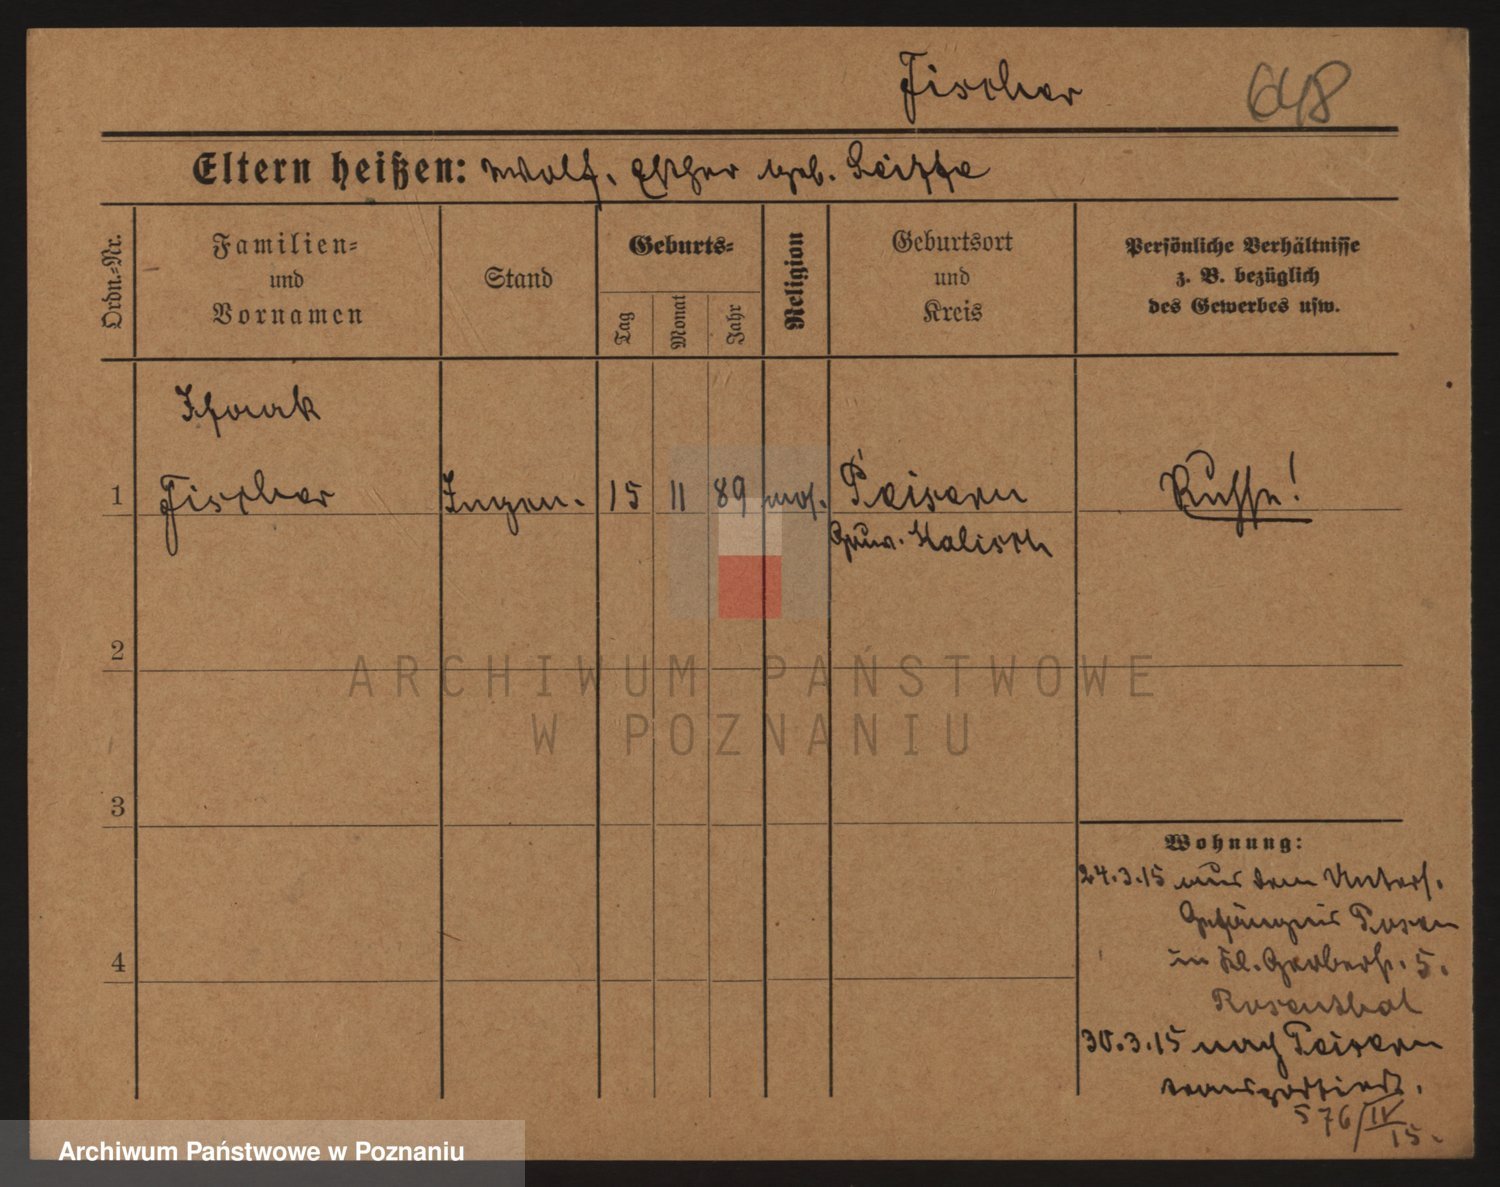 Fischer 648
Eltern heißen: Wolf, Esther geb.
Ordn.-Nr.
Familien-
und
Vornamen
Stand
Geburts-
Tag
Monat
Jahr
Religion
Geburtsort
und
Kreis
Persönliche Verhältnisse
z. B. bezüglich
des Gewerbes usw.
1 Fischer 15 11 89 mos. Peisern Russe!
Gouv. Kalisch
2
3
4
Wohnung:
24.3.15 aus dem Unters.
Gefängnis Posen
in Kl. Gerberstr. 5.
Rosenthal
30.3.15 nach Peisern
transportiert.
576/IV
15.
ARCHIWUM PAŃSTWOWE
W POZNANIU
Archiwum Państwowe w Poznaniu